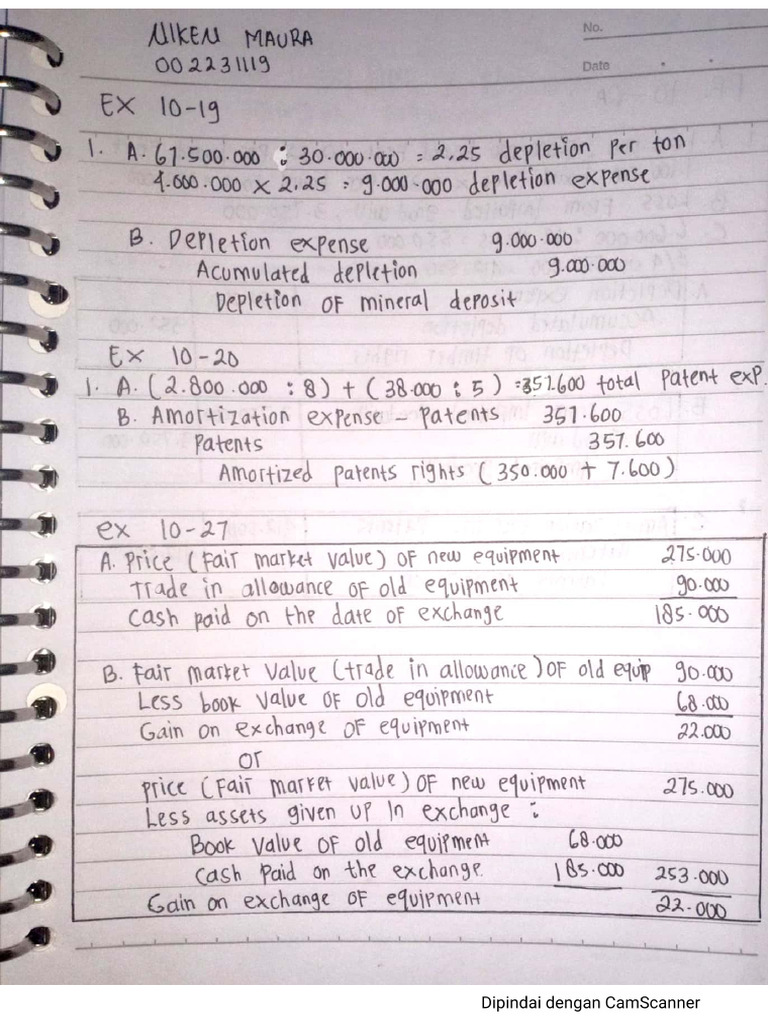 NIKEN MAURA
002231119
No.
Date
EX 10-19
1. A. 67.500.000 : 30.000.000 = 2,25 depletion per ton
4.000.000 x 2,25 = 9.000.000 depletion expense
B. Depletion expense 9.000.000
Acumulated depletion 9.000.000
Depletion of mineral deposit
EX 10-20
1. A. (2.800.000 : 8) + (38.000 : 5) = 357.600 total patent exp.
B. Amortization expense - patents 357.600
Patents 357.600
Amortized patents rights (350.000 + 7.600)
ex 10-27
A. Price (Fair market value) of new equipment 275.000
Trade in allowance of old equipment 90.000
Cash paid on the date of exchange 185.000
B. Fair market value (trade in allowance) of old equip 90.000
Less book value of old equipment 68.000
Gain on exchange of equipment 22.000
or
Price (Fair market value) of new equipment 275.000
Less assets given up in exchange :
Book value of old equipment 68.000
Cash paid on the exchange. 185.000 253.000
Gain on exchange of equipment 22.000
Dipindai dengan CamScanner